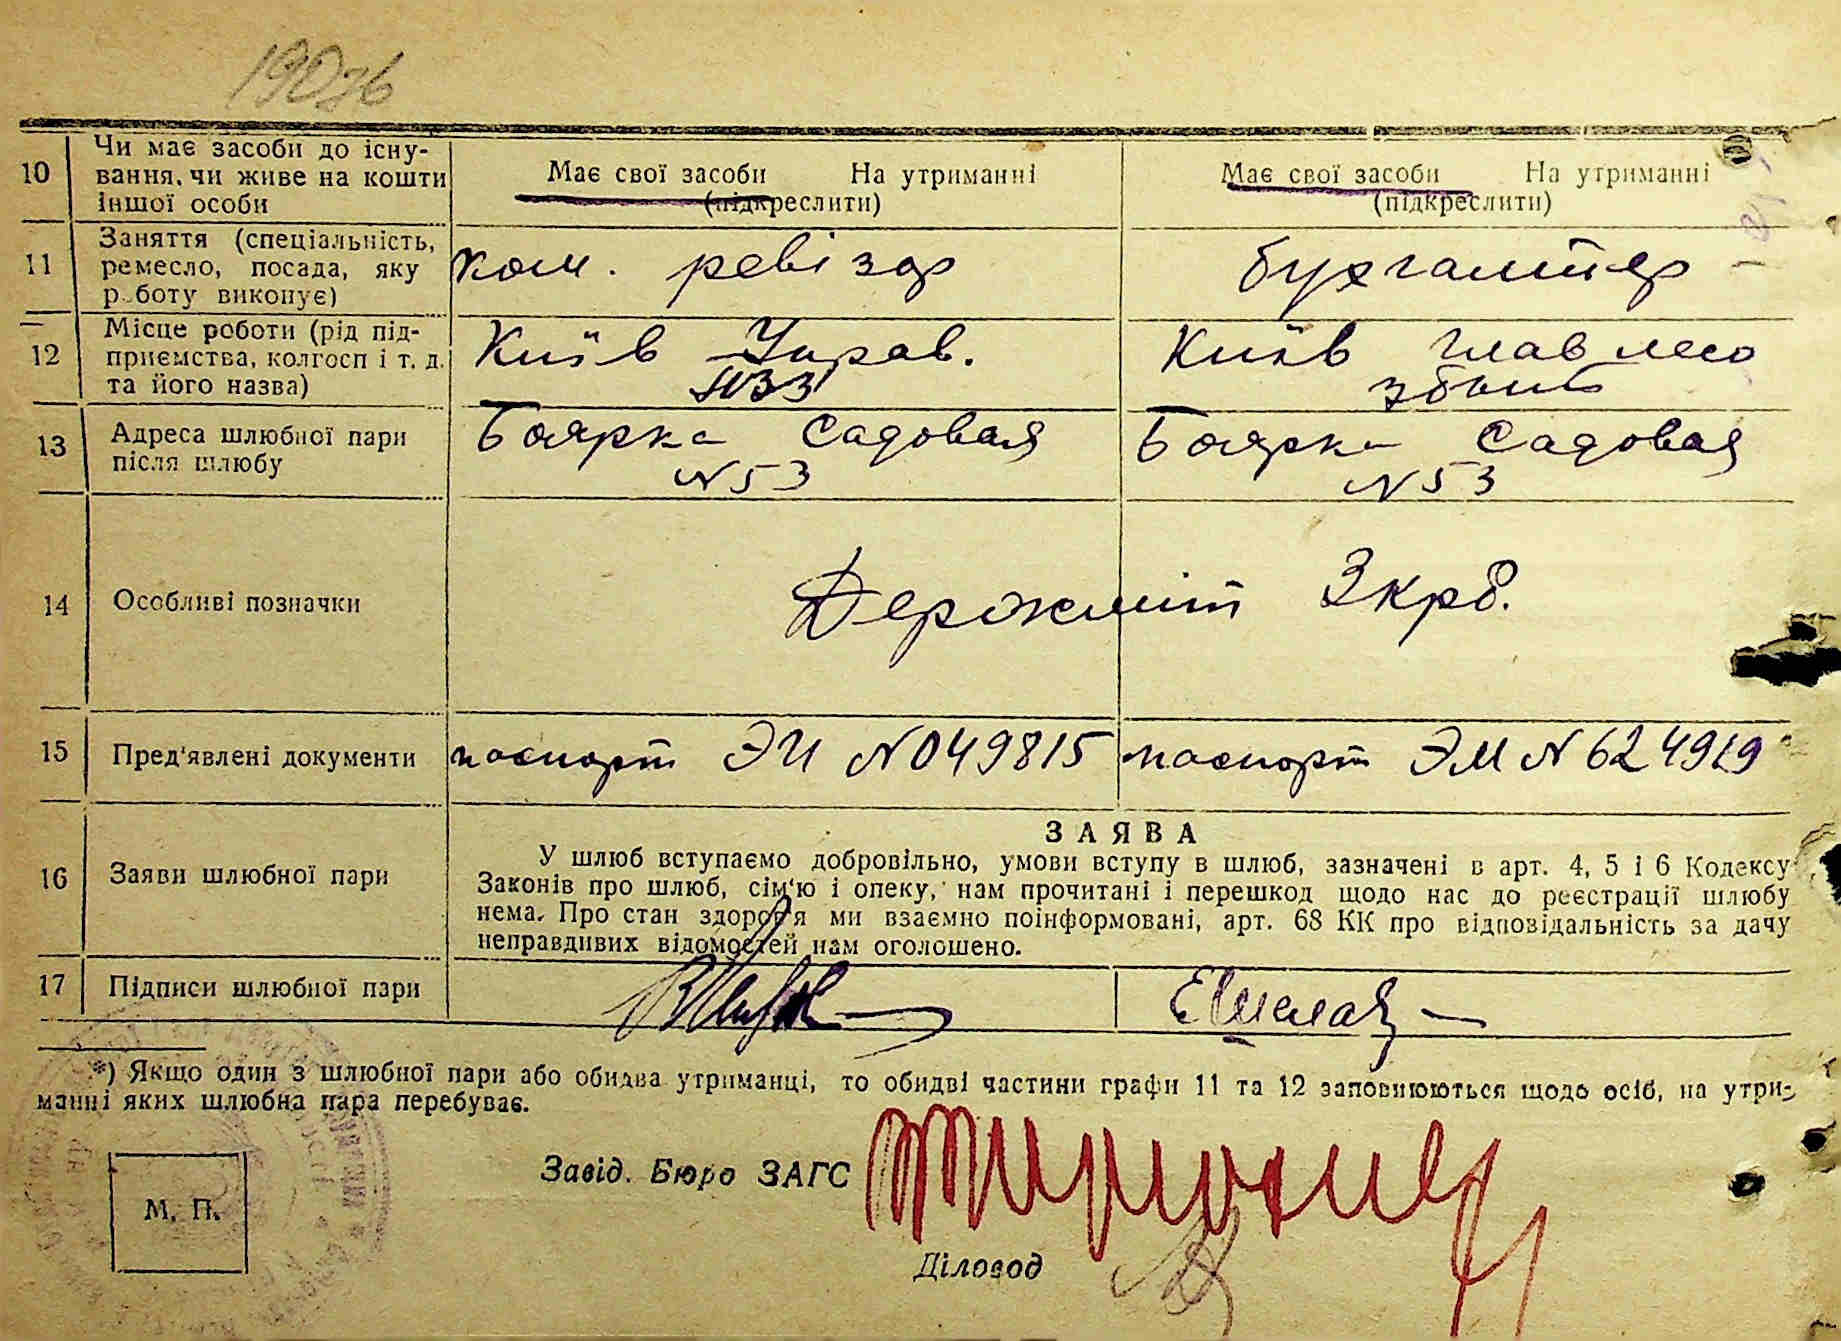 10 Чи має засоби до існу-
вання, чи живе на кошти
іншої особи
Має свої засоби На утриманні
(підкреслити)
Має свої засоби На утриманні
(підкреслити)
11 Заняття (спеціальність,
ремесло, посада, яку
роботу виконує)
ком. ревізор
бухгалтер
12 Місце роботи (рід під-
приємства, колгосп і т. д.
та його назва)
Київ Управ.
ЮЗЗ
Київ главлесо
збыт
13 Адреса шлюбної пари
після шлюбу
Боярка Садовая
N 53
Боярка Садовая
N 53
14 Особливі позначки
Держмит 3 крб.
15 Пред'явлені документи
паспорт ЭИ N 049815
паспорт ЭМ N 624919
16 Заяви шлюбної пари
ЗАЯВА
У шлюб вступаємо добровільно, умови вступу в шлюб, зазначені в арт. 4, 5 і 6 Кодексу
Законів про шлюб, сім'ю і опеку, нам прочитані і перешкод щодо нас до реєстрації шлюбу
нема. Про стан здоров'я ми взаємно поінформовані, арт. 68 КК про відповідальність за дачу
неправдивих відомостей нам оголошено.
17 Підписи шлюбної пари
*) Якщо один з шлюбної пари або обидва утриманці, то обидві частини графи 11 та 12 заповнюються щодо осіб, на утри-
манні яких шлюбна пара перебуває.
Завід. Бюро ЗАГС
М. П.
Діловод